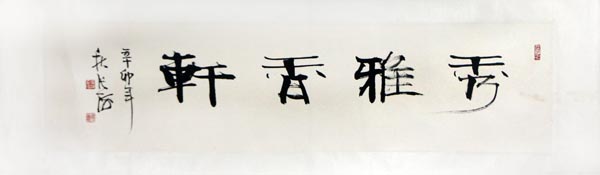 秀雅香軒
辛卯年
秋长河